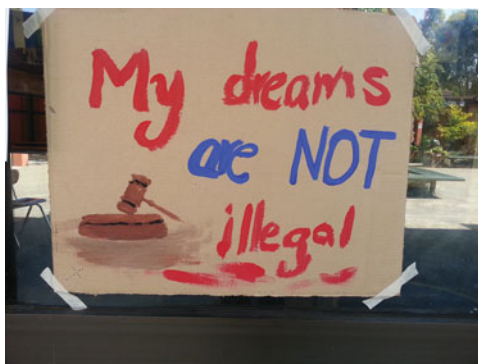 My dreams
are NOT
illegal